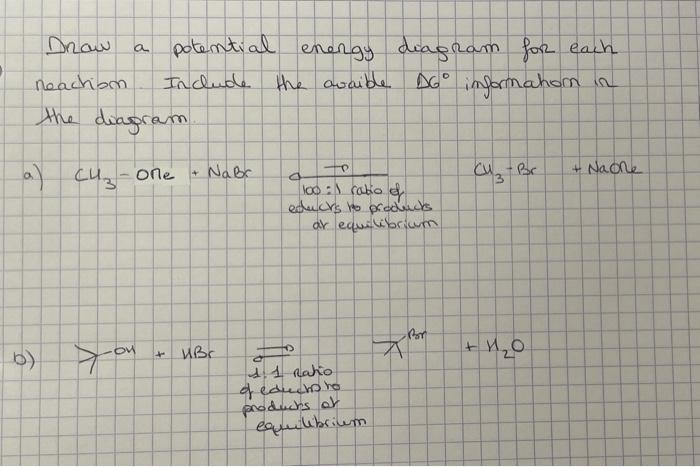 Draw a potential energy diagram for each
reaction. Include the avaible ΔG° information in
the diagram.
a) CH3-OMe + NaBr ⇌ CH3-Br + NaOMe
100:1 ratio of
educts to products
at equilibrium
b) OH + HBr ⇌ Br + H2O
1:1 ratio
of educts to
products at
equilibrium